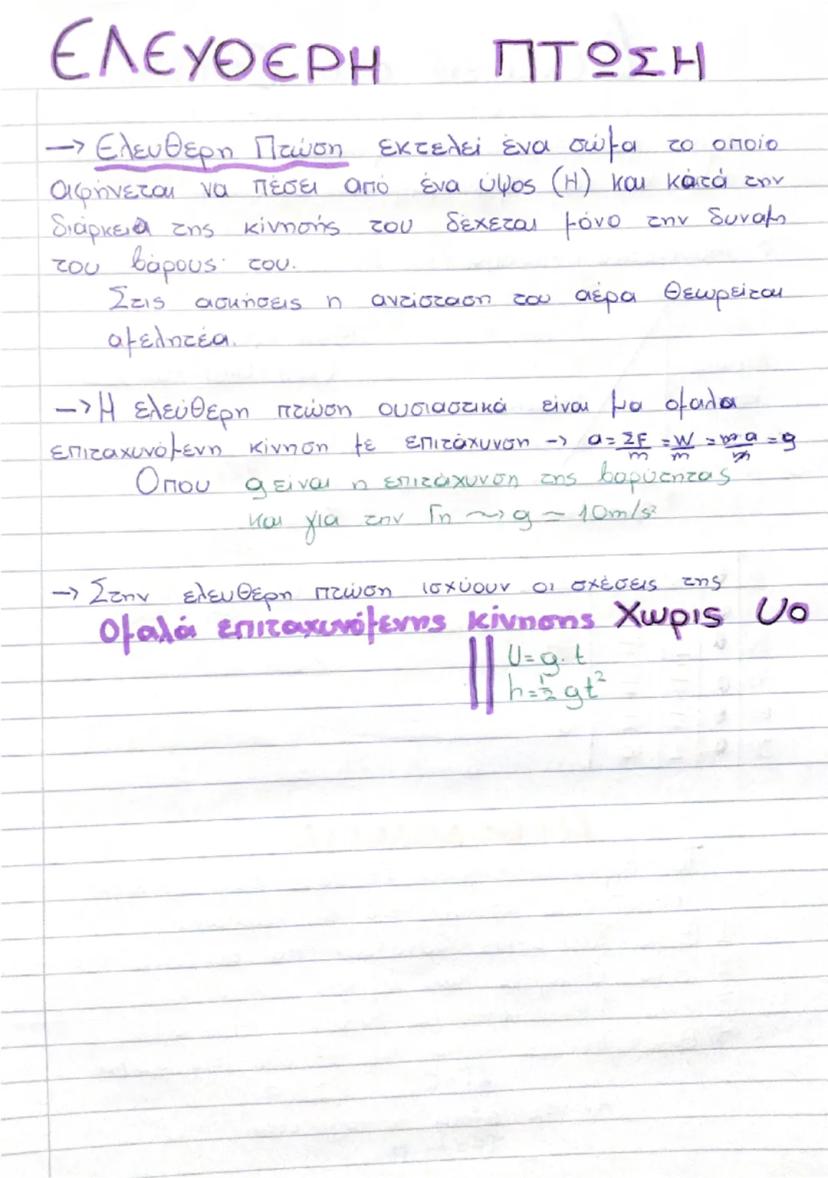 ΕΛΕΥΘΕΡΗ ΠΤΩΣΗ
→ Ελευθερη Πτώση εκτελεί ένα σώμα το οποίο
αφήνεται να πέσει από ένα ύψος (Η) και κατά την
διάρκεια της κίνησής του δέχεται μόνο την δυναμη
του βάρους του.
Στις ασκήσεις η αντίσταση του αέρα θεωρείται
αμελητέα.
→ Η ελεύθερη πτώση ουσιαστικά είναι μια ομαλα
επιταχυνόμενη κίνηση με επιτάχυνση → a = ΣF/m = W/m = m a/m = g
Οπου g είναι η επιτάχυνση της βαρύτητας
και για την Γη ⤳ g = 10m/s²
→ Στην ελευθερη πτώση ισχύουν οι σχέσεις της
Ομαλά επιταχυνόμενης κίνησης Χωρις Uo
U = g . t
h = 1/2 g t²